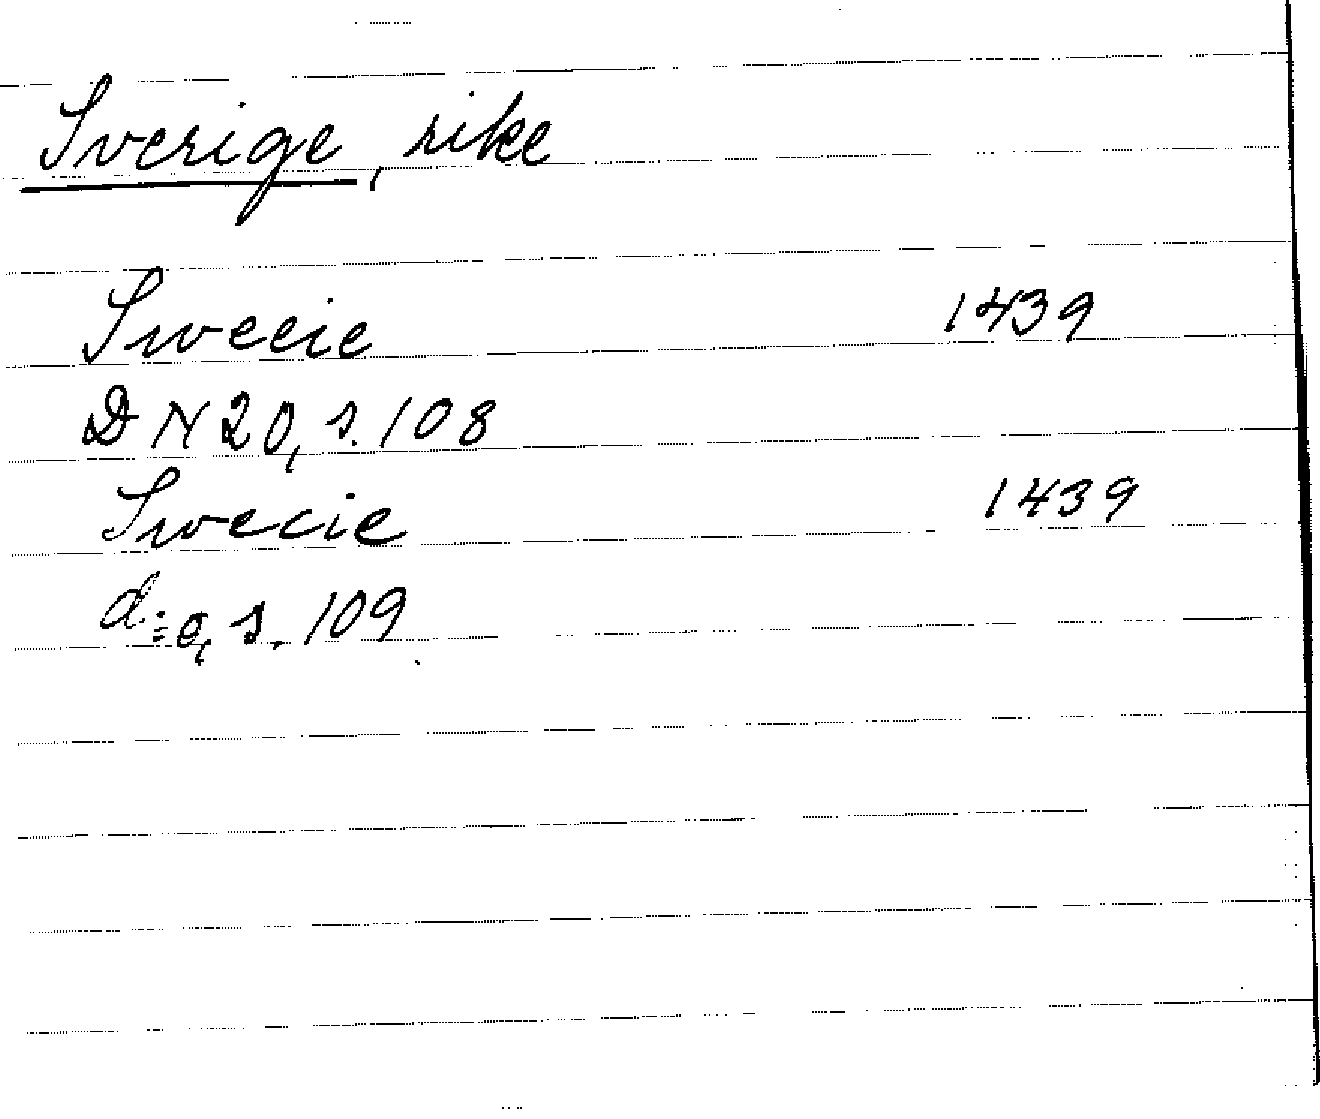 Sverige, rike
Swecie 1439
DN 20, s. 108
Swecie 1439
d:o, s. 109